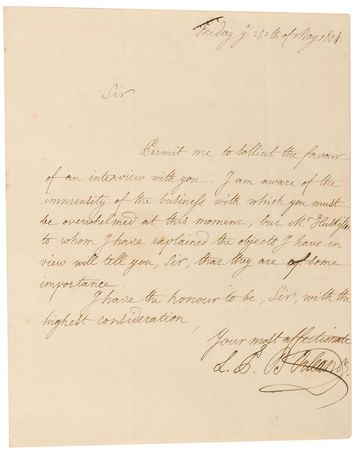 Friday yᵉ 25th of May 1804.
Sir.
Permit me to sollicit the favour
of an interview with you. I am aware of the
immensity of the business with which you must
be overwhelmed at this moment, but Mr.
to whom I have explained the objects I have in
view will tell you, Sir, that they are of some
importance.
I have the honour to be, Sir, with the
highest consideration,
Your most affectionate
L. P. D'Orleans